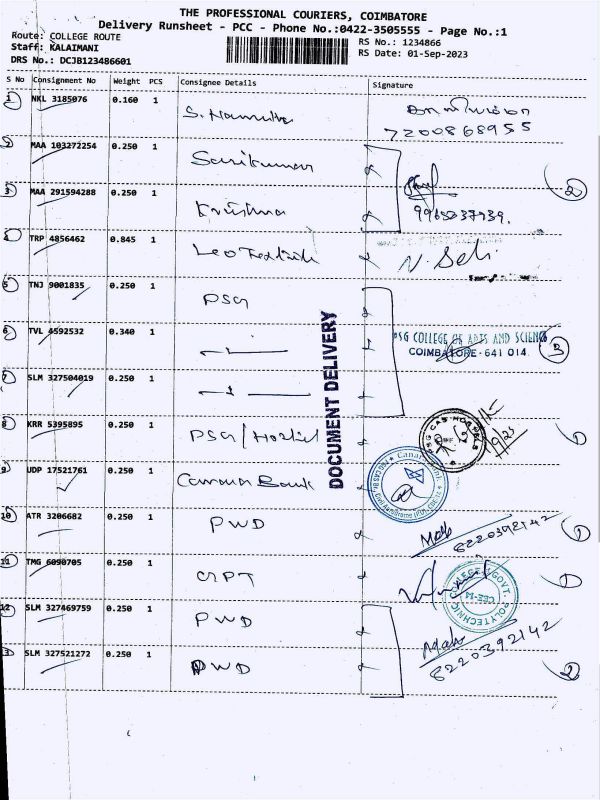 THE PROFESSIONAL COURIERS, COIMBATORE
Delivery Runsheet - PCC - Phone No.:0422-3505555 - Page No.:1
Route: COLLEGE ROUTE
Staff: KALAIMANI
DRS No.: DCJB123486601
RS No.: 1234866
RS Date: 01-Sep-2023
S No Consignment No Weight PCS Consignee Details Signature
1 NKL 3185076 0.160 1 S.
7200868955
2 MAA 103272254 0.250 1 Sasikumar
3 MAA 291594288 0.250 1 Krishna
2
4 TRP 4856462 0.845 1 Leo
5 TNJ 9001835 0.250 1 PSG
6 TVL 4592532 0.340 1
PSG COLLEGE OF ARTS AND SCIENCE
COIMBATORE - 641 014.
3
7 SLM 327504019 0.250 1
DOCUMENT DELIVERY
8 KRR 5395895 0.250 1 PSG/Hostel
1
9 UDP 17521761 0.250 1 Canara Bank
10 ATR 3206682 0.250 1 PWD
6220392142
1
11 TMG 6090705 0.250 1 GPT
1
12 SLM 327469759 0.250 1 PWD
13 SLM 327521272 0.250 1 PWD
6220392142
2